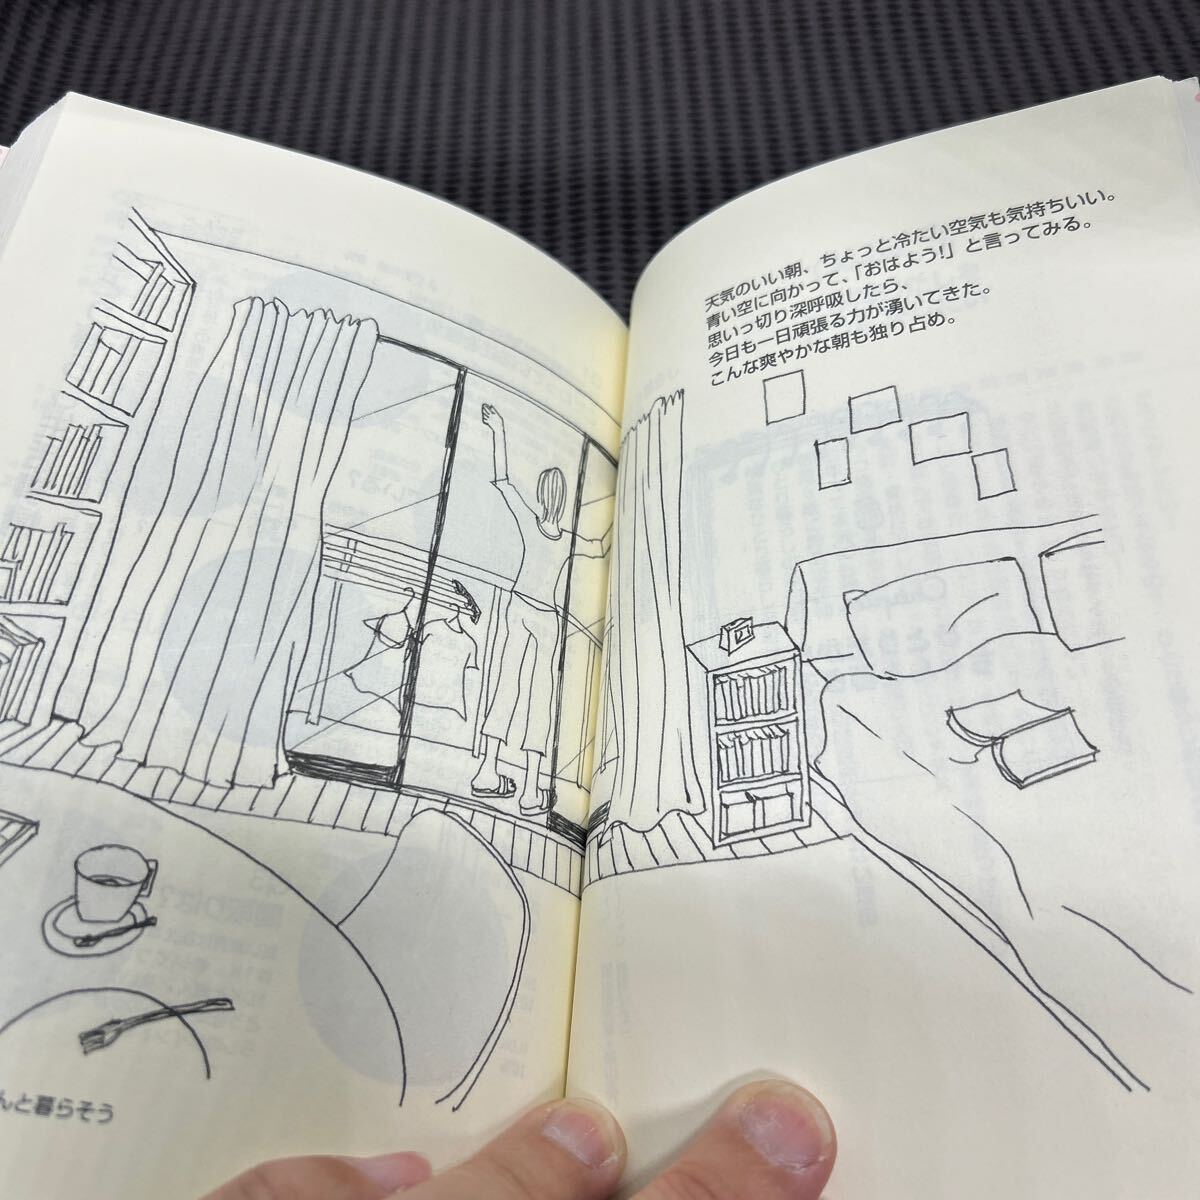 天気のいい朝、ちょっと冷たい空気も気持ちいい。
青い空に向かって、「おはよう！」と言ってみる。
思いっ切り深呼吸したら、
今日も一日頑張る力が湧いてきた。
こんな爽やかな朝も独り占め。
んと暮らそう